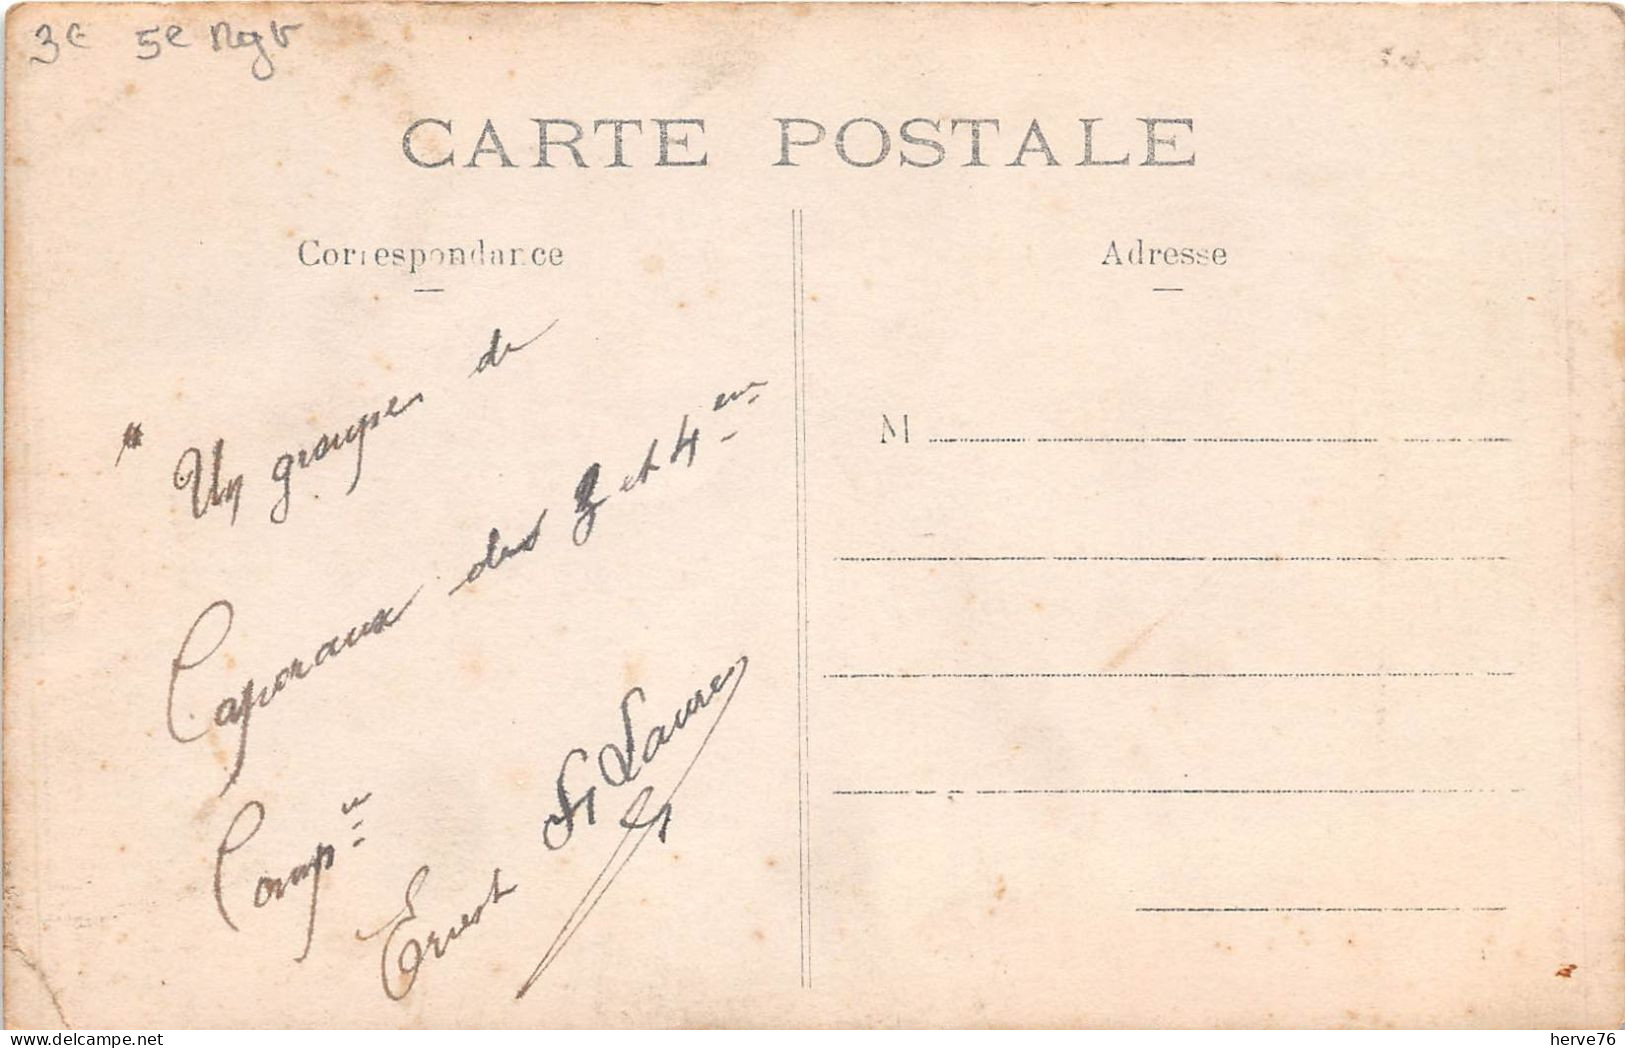 3€ 5e Rgt
CARTE POSTALE
Correspondance
Adresse
Un groupe de
M
Caporaux des 3 et 4em
Comp
Ernest St Laure
delcampe.net
herve76